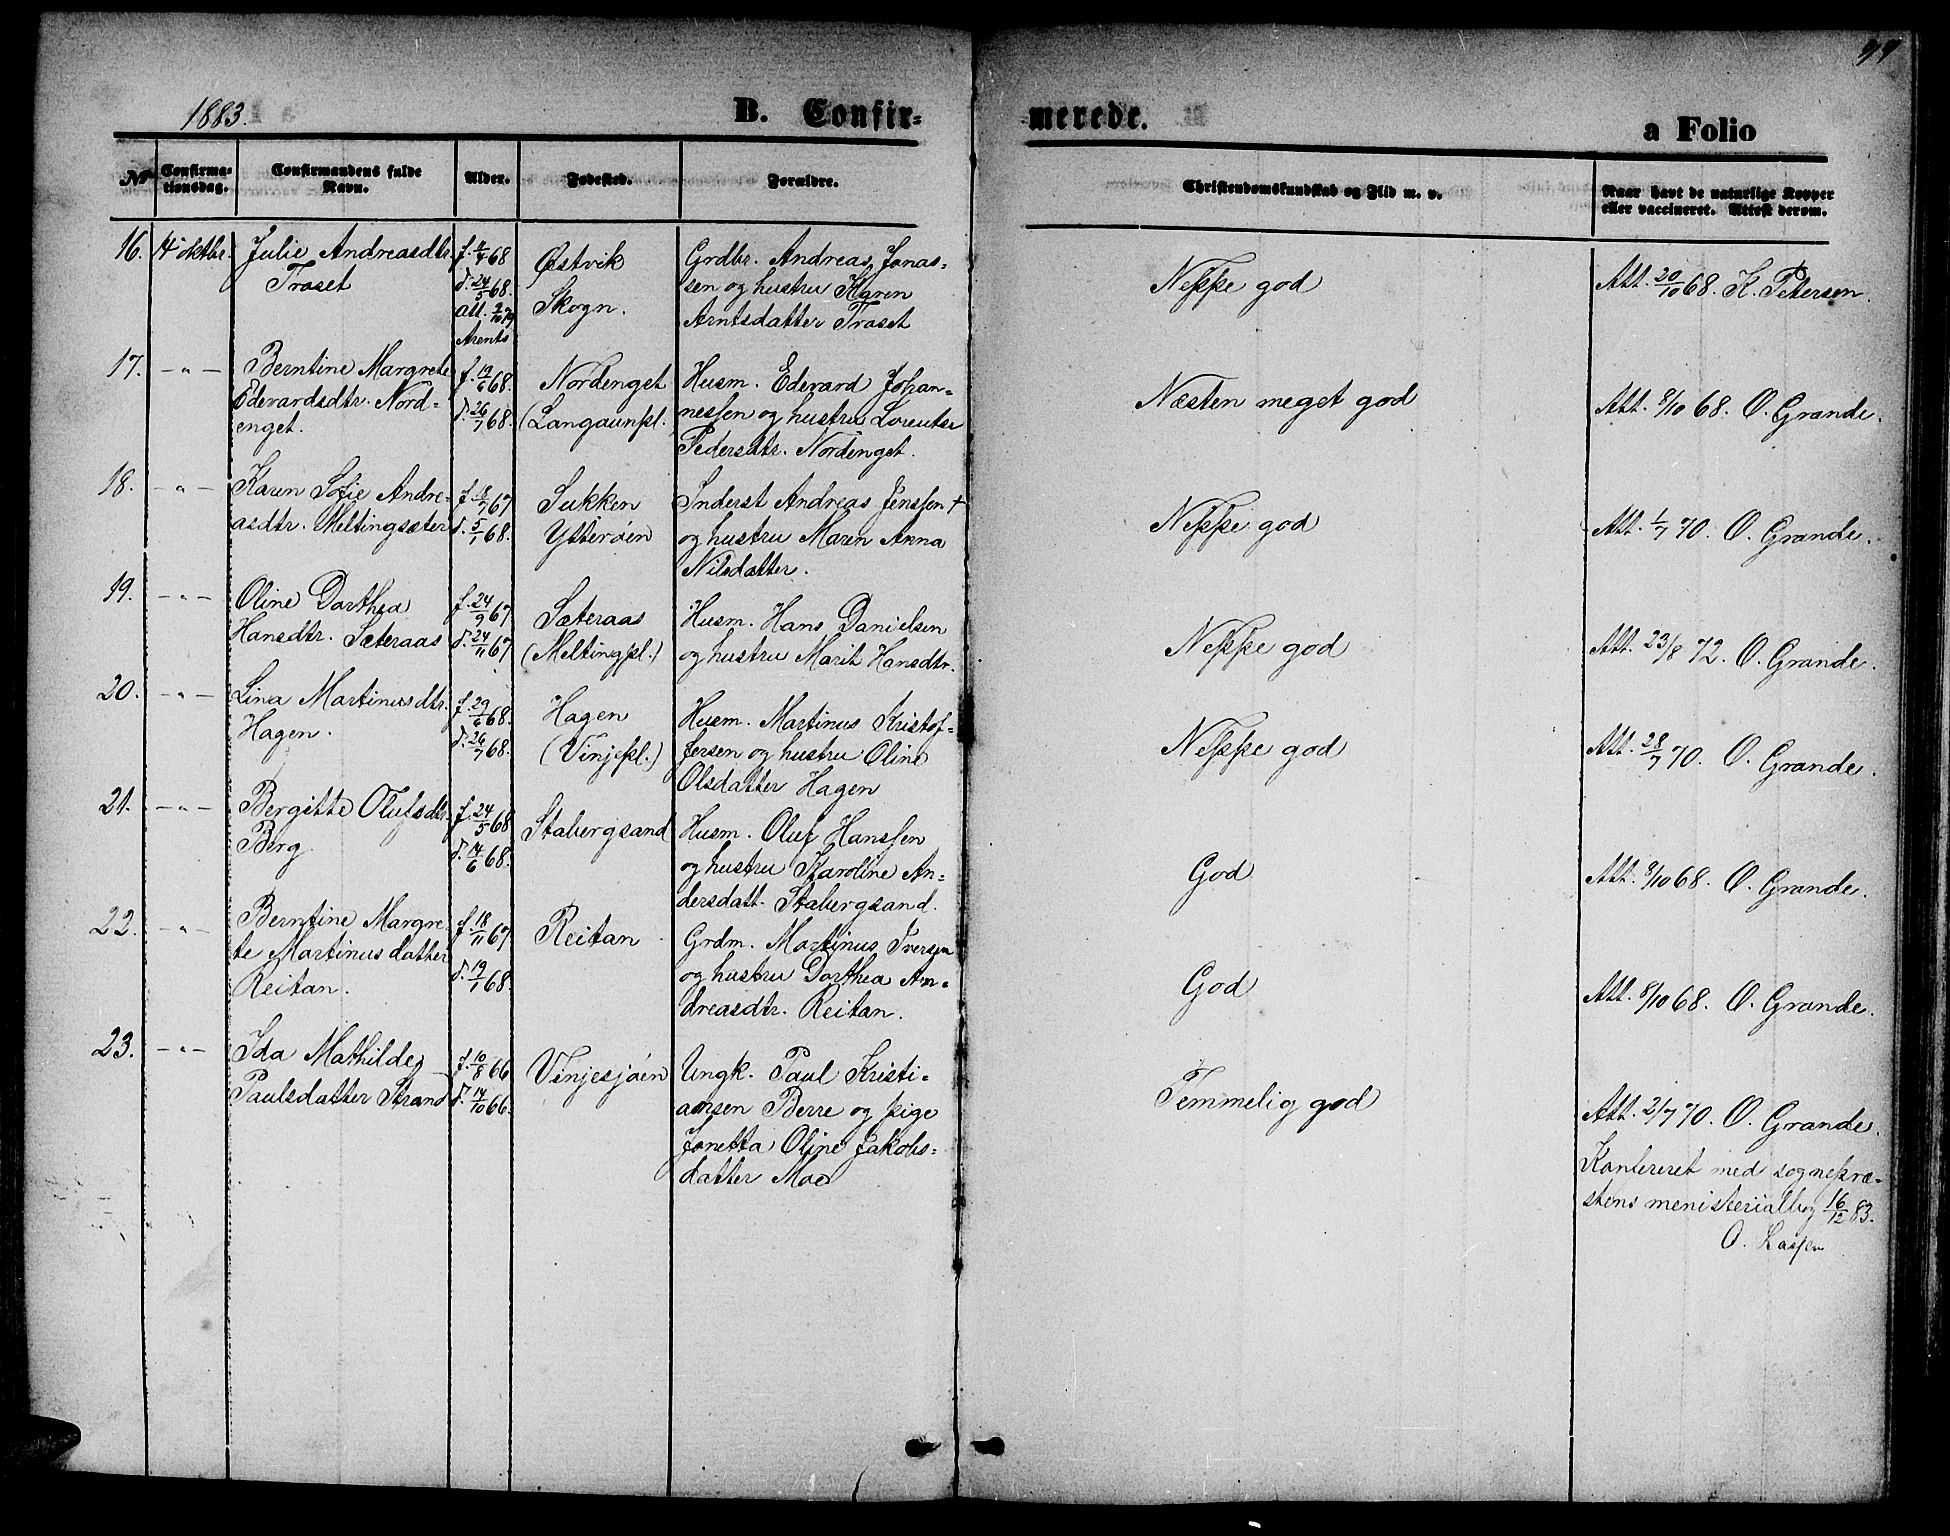 99
1883.
B. Confir-
merede.
a Folio
No
Confirma-
tionsdag.
Confirmandens fulde
Navn.
Alder.
Fødested.
Forældre.
Christendomskundskab og Flid m. v.
Naar havt de naturlige Kopper
eller vaccineret. Attest derom.
16. 14 oktbr.
Julie Andreasdtr.
Troset
f. 4/4 68
d. 24/5 68.
att. 2/10 79
Arents
Østvik
Skogn.
Grdbr. Andreas Jonas-
sen og hustru Karen
Arntsdatter Troset
Neppe god
Att. 20/10 68. K. Petersen.
17. -"-
Berntine Margrete
Edevardsdtr. Nord-
enget.
f. 19/6 68.
d. 26/7 68.
Nordenget
(Langaunpl.
Husm. Edevard Johan-
nessen og hustru Lorentse
Pedersdtr. Nordenget.
Næsten meget god
Att. 8/10 68. O. Grande.
18. -"-
Karen Sofie Andre-
asdtr. Meltingsæter
f. 18/7 67
d. 5/1 68.
Sukken
Ytterøen
Inderst Andreas Jenssen +
og hustru Maren Anna
Nilsdatter.
Neppe god
Att. 1/7 70. O. Grande.
19. -"-
Oline Dorthea
Hansdtr. Sæteraas
f. 24/9 67
d. 24/11 67
Sæteraas
(Meltingpl.)
Husm. Hans Danielsen
og hustru Marit Hansdtr.
Neppe god
Att. 23/8 72. O. Grande.
20. -"-
Lina Martinusdtr.
Hagen.
f. 29/6 68.
d. 26/7 68.
Hagen
(Vinjepl.)
Husm. Martinus Kristof-
fersen og hustru Oline
Olsdatter Hagen
Neppe god
Att. 28/7 70. O. Grande.
21. -"-
Bergitte Olufsdtr.
Berg
f. 24/5 68
d. 14/6 68.
Stabergsand
Husm. Oluf Hanssen
og hustru Karoline An-
dersdatt. Stabergsand.
God
Att. 8/10 68. O. Grande.
22. -"-
Berntine Margre-
te Martinusdatter
Reitan.
f. 18/11 67
d. 19/1 68.
Reitan
Grdm. Martinus Iversen
og hustru Dorthea An-
dreasdtr. Reitan.
God
Att. 8/10 68. O. Grande.
23. -"-
Ida Mathilde
Paulsdatter Strand
f. 10/8 66
d. 14/10 66.
Vinjesjøen
Ungk. Paul Kristi-
ansen Berre og pige
Jonetta Oline Jakobs-
datter Moe
Temmelig god
Att. 2/7 70. O. Grande.
Konfereret med sognepræ-
stens menisterialbog 16/12 83.
O. Lassen